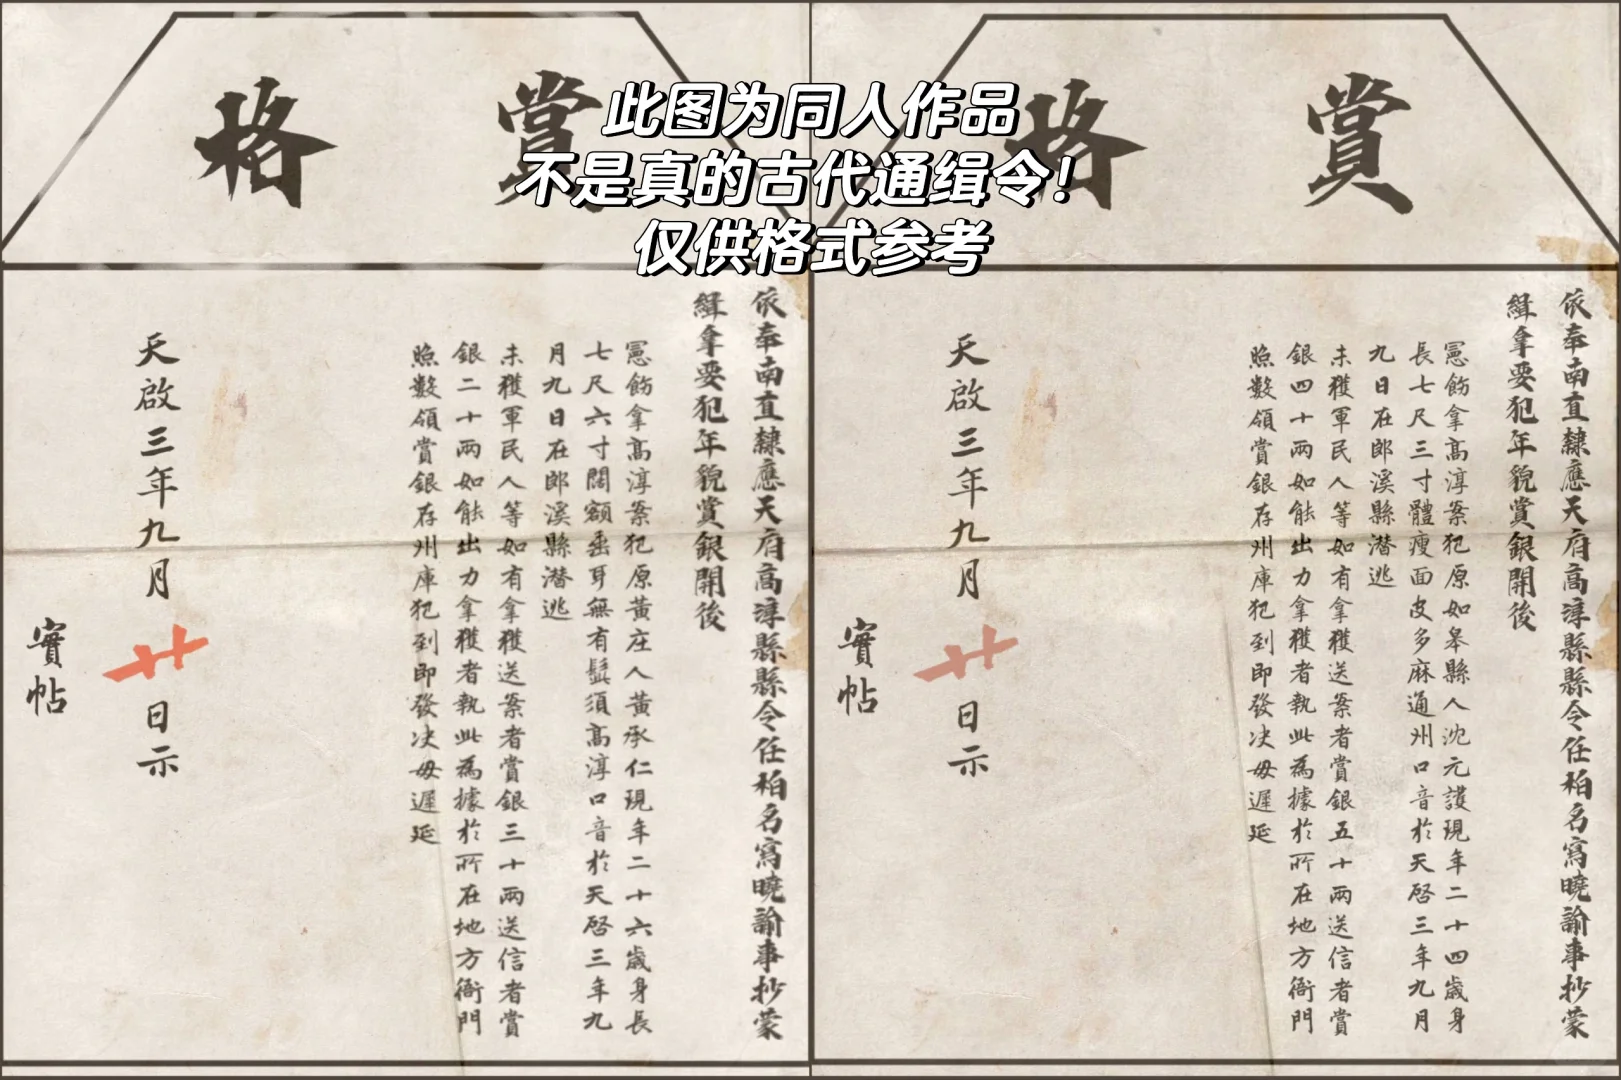 此图为同人作品
不是真的古代通缉令！
仅供格式参考
賞格
依奉南直隸應天府高淳縣縣令任柏名寫曉諭事抄蒙
緝拿要犯年貌賞銀開後
憲飭拿高淳案犯原如皋縣人沈元謢現年二十四歲身
長七尺三寸體瘦面皮多麻通州口音於天啓三年九月
九日在郎溪縣潜逃
未獲軍民人等如有拿獲送案者賞銀五十兩送信者賞
銀四十兩如能出力拿獲者執此為據於所在地方衙門
照數領賞銀存州庫犯到即發决毋遲延
天啟三年九月廿日示
實帖
賞格
依奉南直隸應天府高淳縣縣令任柏名寫曉諭事抄蒙
緝拿要犯年貌賞銀開後
憲飭拿高淳案犯原黃庄人黃承仁現年二十六歲身長
七尺六寸闊額垂耳無有鬍須高淳口音於天啓三年九
月九日在郎溪縣潜逃
未獲軍民人等如有拿獲送案者賞銀三十兩送信者賞
銀二十兩如能出力拿獲者執此為據於所在地方衙門
照數領賞銀存州庫犯到即發决毋遲延
天啟三年九月廿日示
實帖